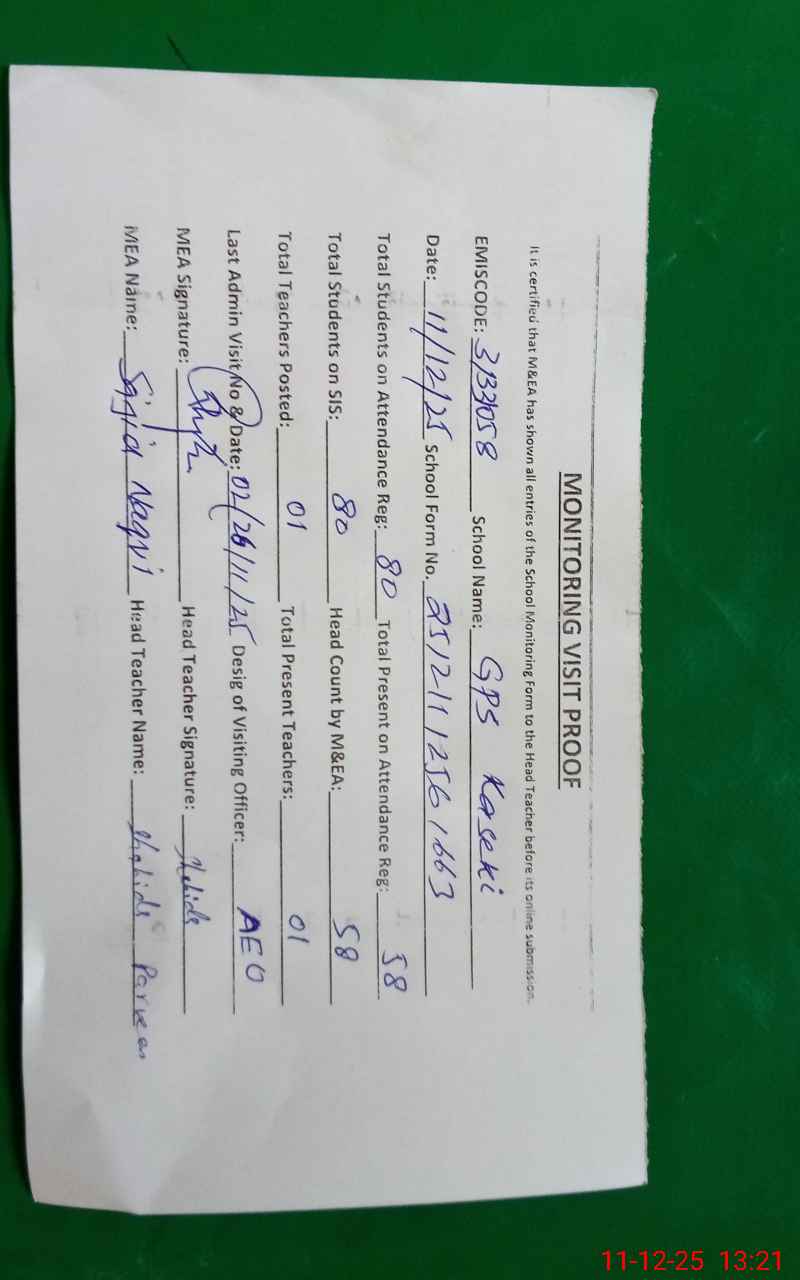 MONITORING VISIT PROOF
It is certified that M&EA has shown all entries of the School Monitoring Form to the Head Teacher before its online submission.
EMISCODE: 31331058 School Name: GPS Kaseki
Date: 11/12/25 School Form No. 25121112561663
Total Students on Attendance Reg: 80 Total Present on Attendance Reg: 58
Total Students on SIS: 80 Head Count by M&EA: 58
Total Teachers Posted: 01 Total Present Teachers: 01
Last Admin Visit No & Date: 02/26/11/25 Desig of Visiting Officer: AEO
MEA Signature: Head Teacher Signature:
MEA Name: Sajjid Naqvi Head Teacher Name: Parveen
11-12-25 13:21